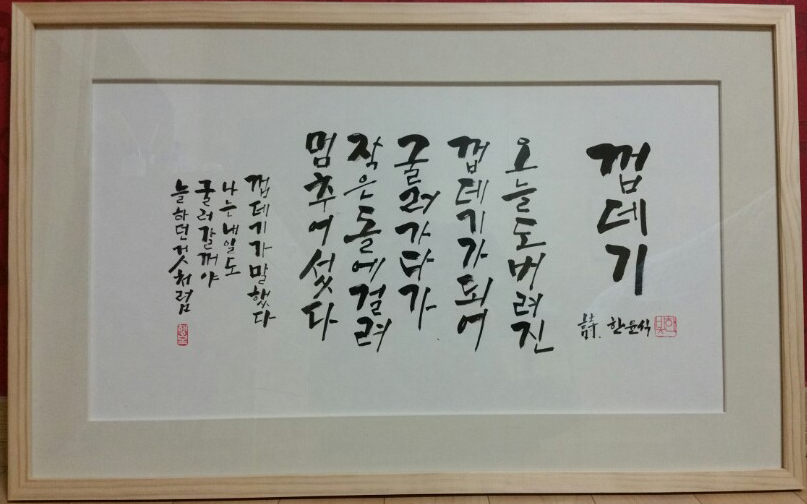 껍데기
詩. 한문식
오늘도 버려진
껍데기가 되어
굴러가다가
작은 돌에 걸려
멈추어 섰다
껍데기가 말했다
나는 내일도
굴러갈꺼야
늘 하던 것처럼